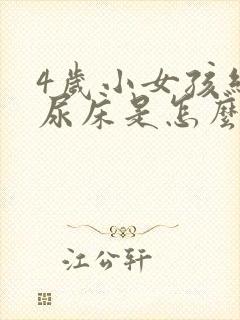 4歲小女孩經
尿床是怎麼
江公轩